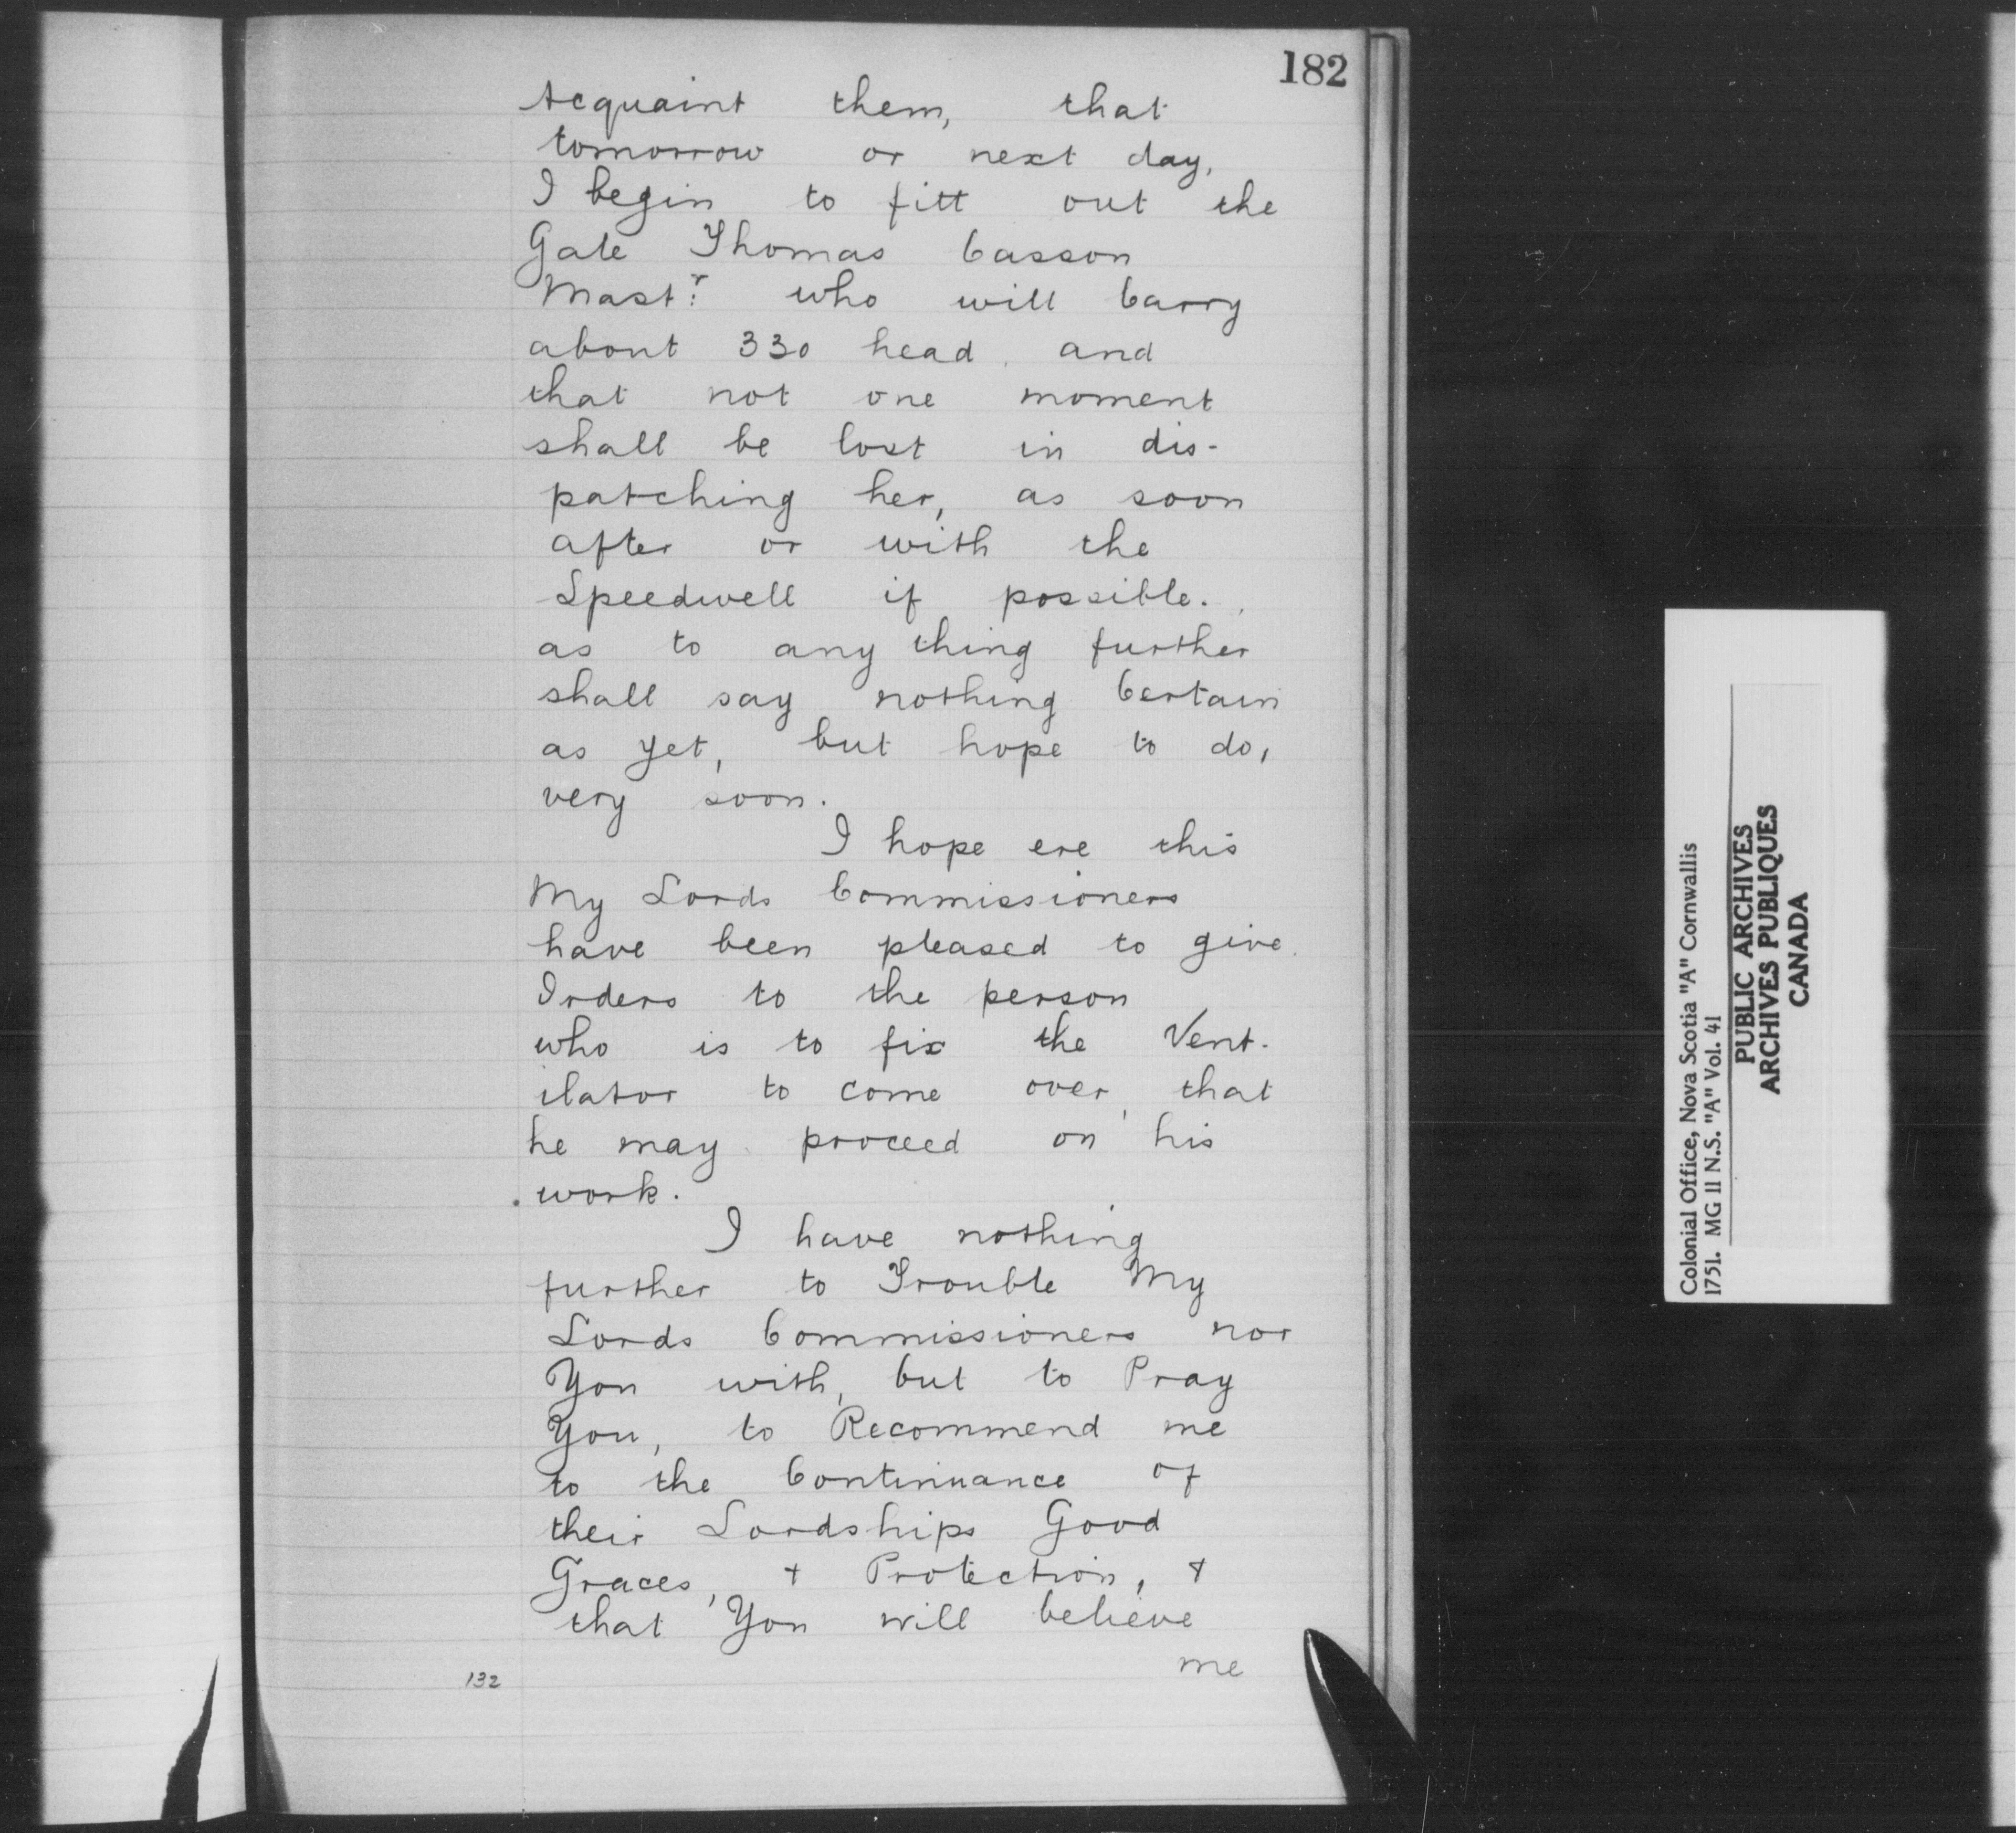 182
Acquaint them, that
tomorrow or next day,
I begin to fitt out the
Gale Thomas Casson
Mastr. who will Carry
about 330 head and
that not one moment
shall be lost in dis-
patching her, as soon
after or with the
Speedwell if possible.
as to any thing further
shall say nothing Certain
as yet, but hope to do,
very soon.
I hope ere this
My Lords Commissioners
have been pleased to give
Orders to the person
who is to fix the Vent-
ilator to come over, that
he may proceed on his
work.
I have nothing
further to Trouble My
Lords Commissioners nor
You with, but to Pray
You, to Recommend me
to the Continuance of
their Lordships Good
Graces, & Protection, &
that You will believe
me
132
Colonial Office, Nova Scotia "A" Cornwallis
1751. MG 11 N.S. "A" Vol. 41
PUBLIC ARCHIVES
ARCHIVES PUBLIQUES
CANADA